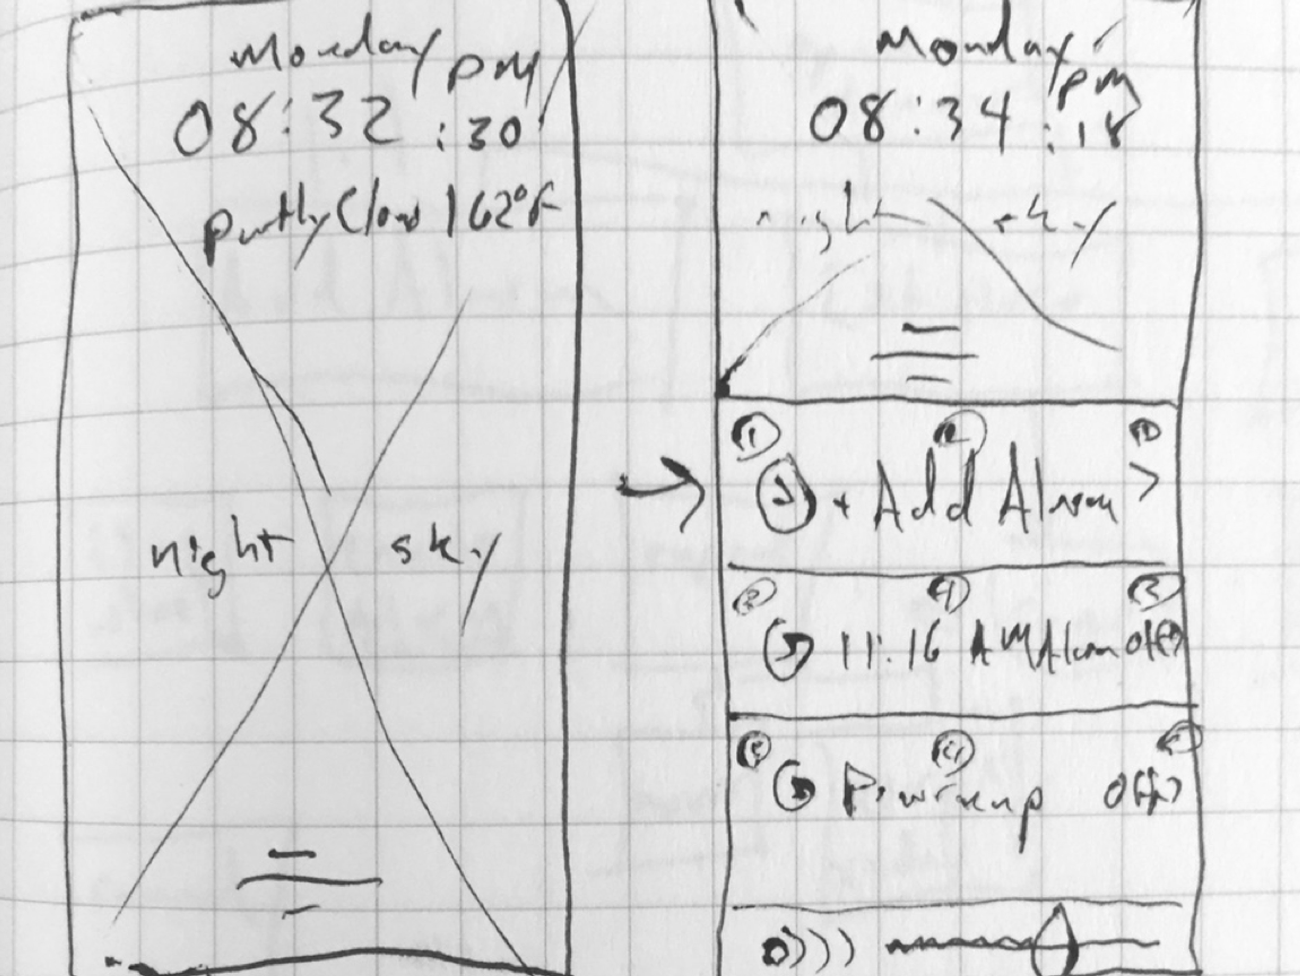 Monday
pm
08:32 :30
Partly Cloud | 62°F
night sky
Monday
pm
08:34 :18
night sky
+ Add Alarm >
11:16 AM Alarm off >
off >